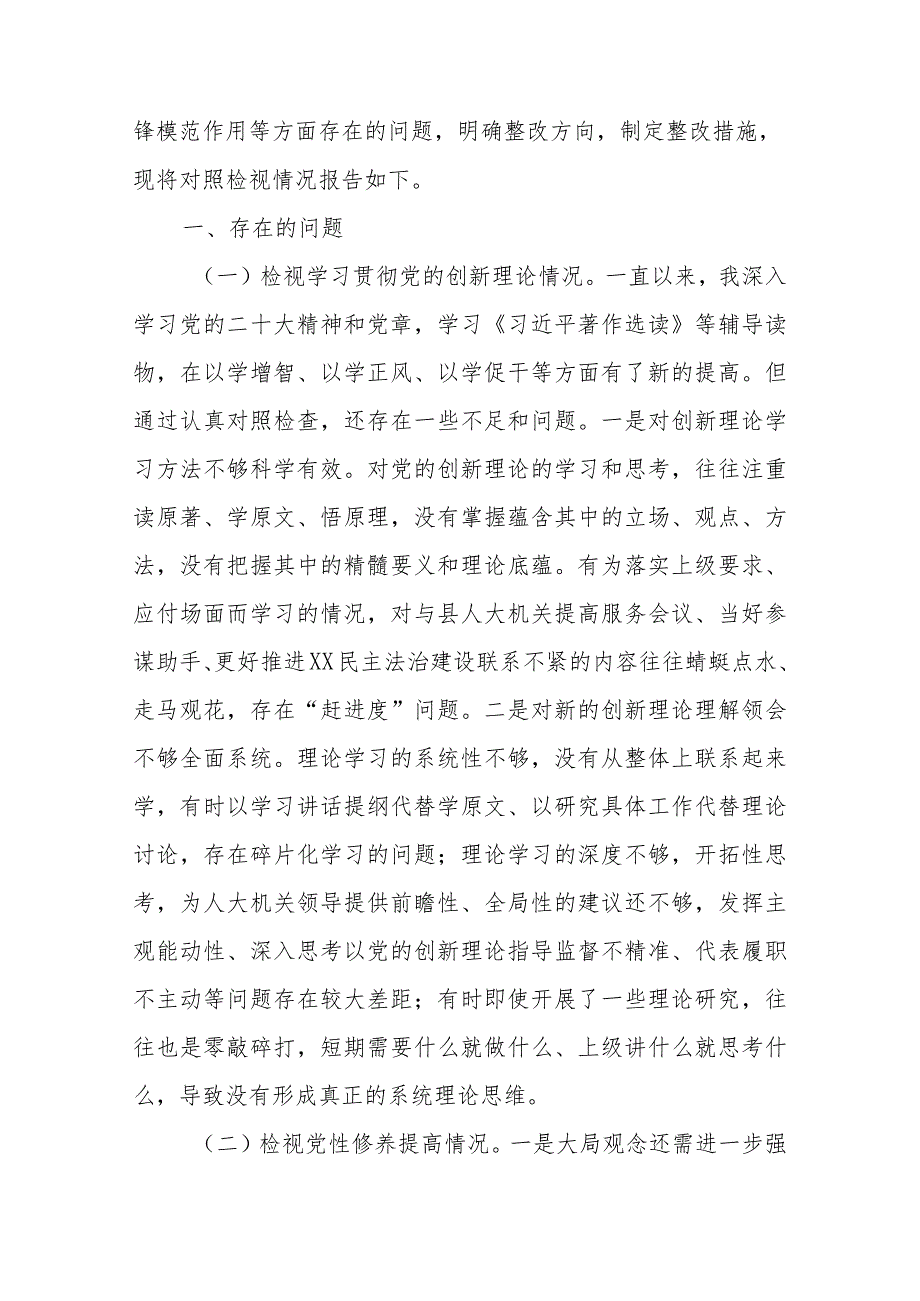 锋模范作用等方面存在的问题，明确整改方向，制定整改措施，
现将对照检视情况报告如下。
一、存在的问题
（一）检视学习贯彻党的创新理论情况。一直以来，我深入
学习党的二十大精神和党章，学习《习近平著作选读》等辅导读
物，在以学增智、以学正风、以学促干等方面有了新的提高。但
通过认真对照检查，还存在一些不足和问题。一是对创新理论学
习方法不够科学有效。对党的创新理论的学习和思考，往往注重
读原著、学原文、悟原理，没有掌握蕴含其中的立场、观点、方
法，没有把握其中的精髓要义和理论底蕴。有为落实上级要求、
应付场面而学习的情况，对与县人大机关提高服务会议、当好参
谋助手、更好推进XX民主法治建设联系不紧的内容往往蜻蜓点水、
走马观花，存在“赶进度”问题。二是对新的创新理论理解领会
不够全面系统。理论学习的系统性不够，没有从整体上联系起来
学，有时以学习讲话提纲代替学原文、以研究具体工作代替理论
讨论，存在碎片化学习的问题；理论学习的深度不够，开拓性思
考，为人大机关领导提供前瞻性、全局性的建议还不够，发挥主
观能动性、深入思考以党的创新理论指导监督不精准、代表履职
不主动等问题存在较大差距；有时即使开展了一些理论研究，往
往也是零敲碎打，短期需要什么就做什么、上级讲什么就思考什
么，导致没有形成真正的系统理论思维。
（二）检视党性修养提高情况。一是大局观念还需进一步强